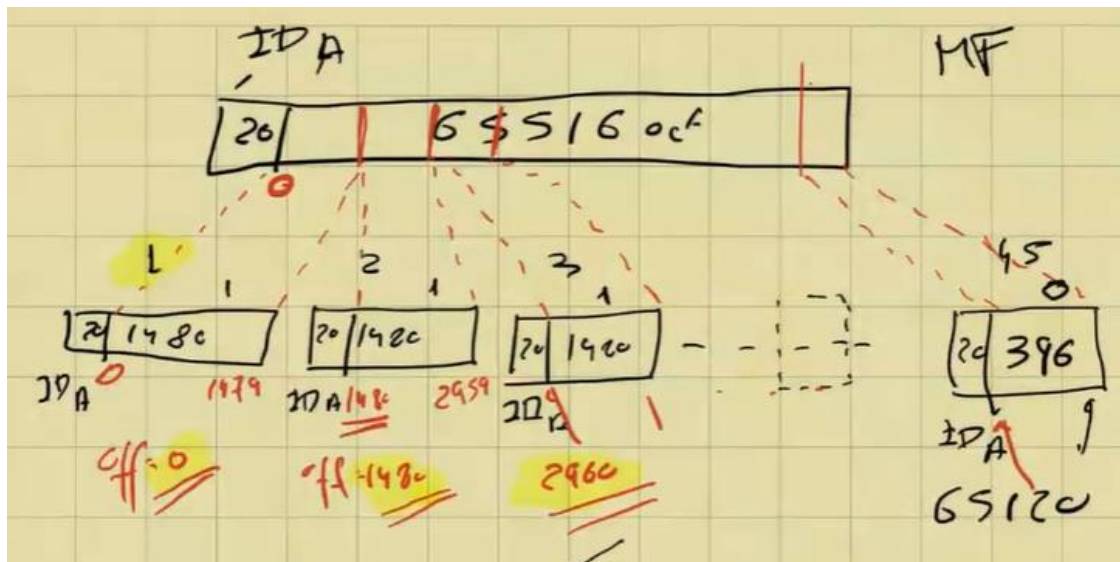 ID A MF
20 65516 oct
0
1 2 3 45
1 1 1 0
20 1480 20 1480 20 1480 20 396
ID A 0 1479 ID A 1480 2959 ID A ID A
off=0 off=1480 2960 65120